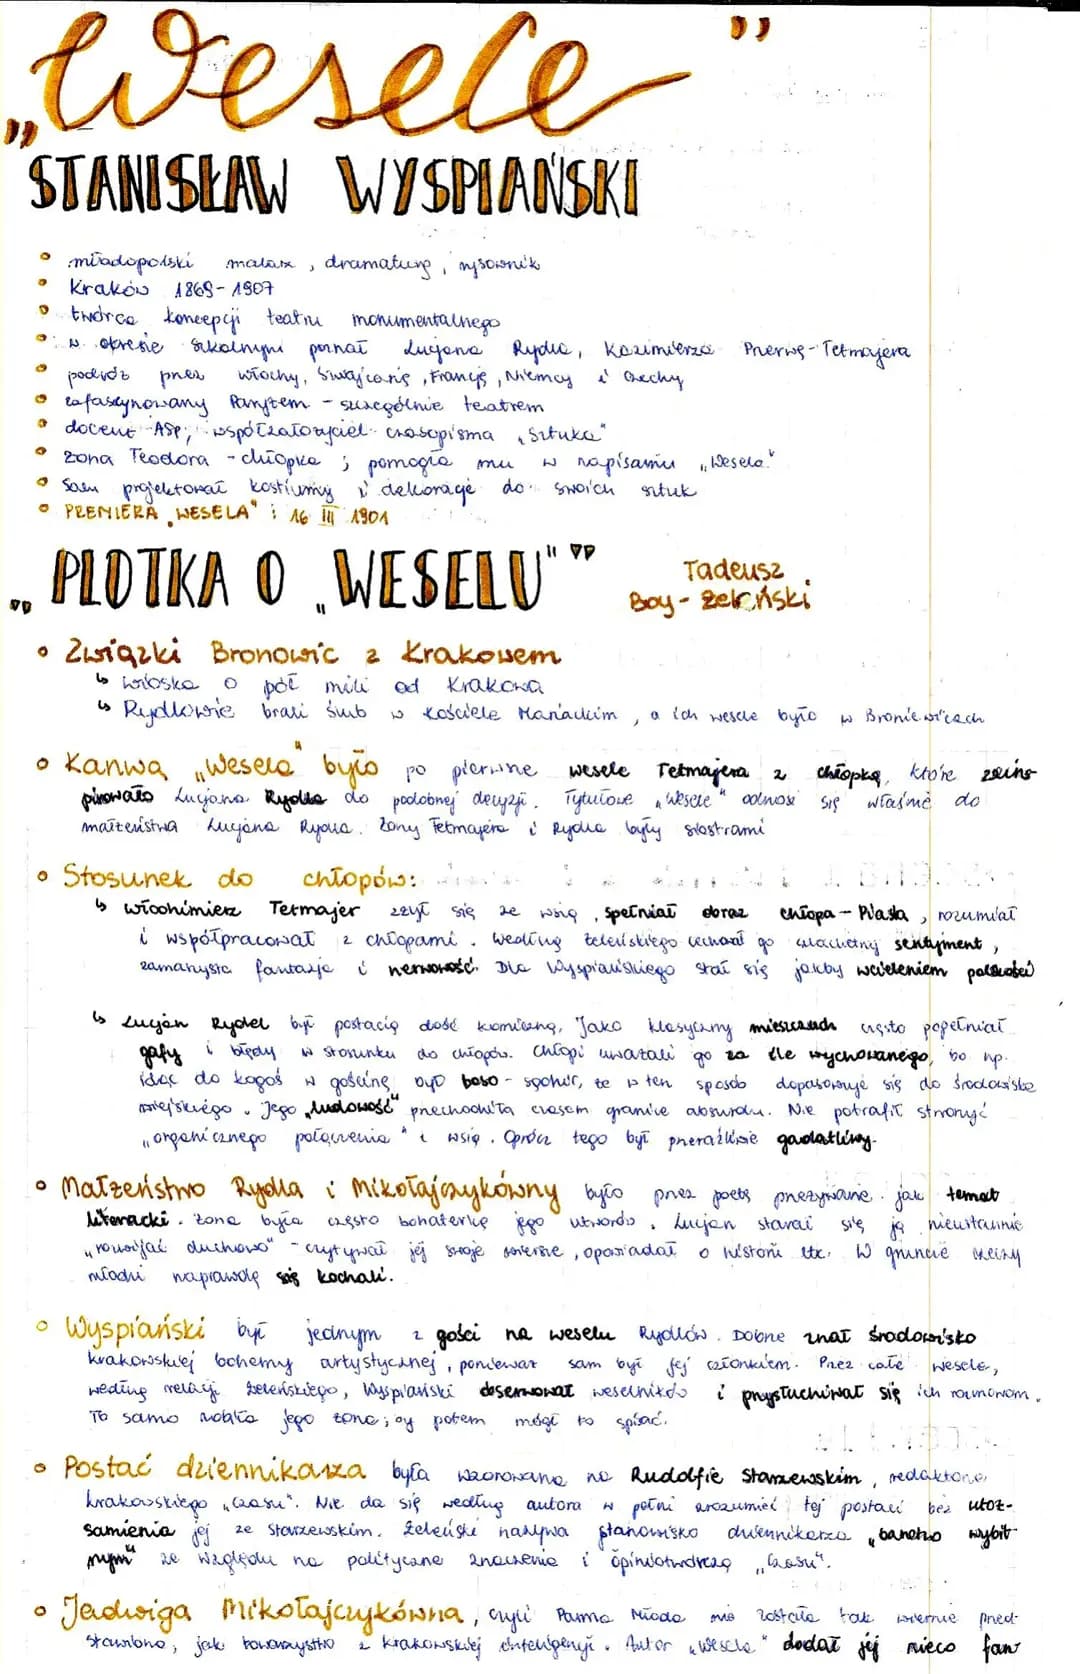 „Wesele”
STANISŁAW WYSPIAŃSKI
• młodopolski malarz, dramaturg, rysownik
• Kraków 1869-1907
• twórca koncepcji teatru monumentalnego
• w okresie szkolnym poznał Lucjana Rydla, Kazimierza Przerwę-Tetmajera
• podróż przez Włochy, Szwajcarię, Francję, Niemcy i Czechy
• zafascynowany Paryżem - szczególnie teatrem
• docent ASP, współzałożyciel czasopisma „Sztuka"
• żona Teodora - chłopka ; pomogła mu w napisaniu „Wesela"
• Sam projektował kostiumy i dekoracje do swoich sztuk
• PREMIERA „WESELA" : 16 III 1901
„PLOTKA O „WESELU"” Tadeusz
Boy-Żeleński
• Związki Bronowic z Krakowem
↳ wioska o pół mili od Krakowa
↳ Rydlowie brali ślub w kościele Mariackim, a ich wesele było w Broniewicach
• Kanwą „Wesela" było po pierwsze wesele Tetmajera z chłopką, które zains-
pirowało Lucjana Rydla do podobnej decyzji. Tytułowe „Wesele" odnosi się właśnie do
małżeństwa Lucjana Rydla. Żony Tetmajera i Rydla były siostrami
• Stosunek do chłopów:
↳ Włodzimierz Tetmajer zżył się ze wsią, spełniał obraz chłopa - Piasta, rozumiał
i współpracował z chłopami. Według Żeleńskiego cechował go szlachetny sentyment,
zamaszysta fantazja i nerwowość. Dla Wyspiańskiego stał się jakby wcieleniem polskości
↳ Lucjan Rydel był postacią dość komiczną. Jako klasyczny mieszczuch często popełniał
gafy i błędy w stosunku do chłopów. Chłopi uważali go za źle wychowanego, bo np.
idąc do kogoś w gościnę, był boso - sądził, że w ten sposób dopasowuje się do środowiska
wiejskiego. Jego „ludowość" przechodziła czasem granice absurdu. Nie potrafił stworzyć
„organicznego połączenia" z wsią. Oprócz tego był przeraźliwie gadatliwy.
• Małżeństwo Rydla i Mikołajczykówny było przez poetę przeżywane jak temat
literacki. Żona była często bohaterką jego utworów. Lucjan starał się ją nieustannie
„rozwijać duchowo" - czytywał jej swoje wiersze, opowiadał o historii itc. W gruncie rzeczy
młodzi naprawdę się kochali.
• Wyspiański był jednym z gości na weselu Rydlów. Dobrze znał środowisko
krakowskiej bohemy artystycznej, ponieważ sam był jej członkiem. Przez całe wesele,
według relacji Żeleńskiego, Wyspiański obserwował weselników i przysłuchiwał się ich rozmowom.
To samo robiła jego żona; by potem mógł to spisać.
• Postać dziennikarza była wzorowana na Rudolfie Starzewskim, redaktorze
krakowskiego „Czasu". Nie da się według autora w pełni zrozumieć tej postaci bez utoż-
samienia jej ze Starzewskim. Żeleński nazywa stanowisko dziennikarza „bardzo wybit-
nym" ze względu na polityczne znaczenie i opiniotwórczą „Czasu".
• Jadwiga Mikołajczykówna, czyli Panna Młoda nie została tak wiernie przed-
stawiona, jak towarzystwo z krakowskiej inteligencji. Autor „Wesela" dodał jej nieco fan